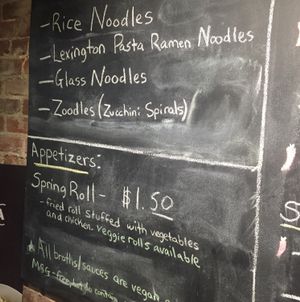 - Rice Noodles
- Lexington Pasta Ramen Noodles
- Glass Noodles
- Zoodles (Zucchini Spirals)
Appetizers:
Spring Roll - $1.50
- fried roll stuffed with vegetables
and chicken veggie rolls available
All broths/sauces are vegan
MSG-free, but do contain